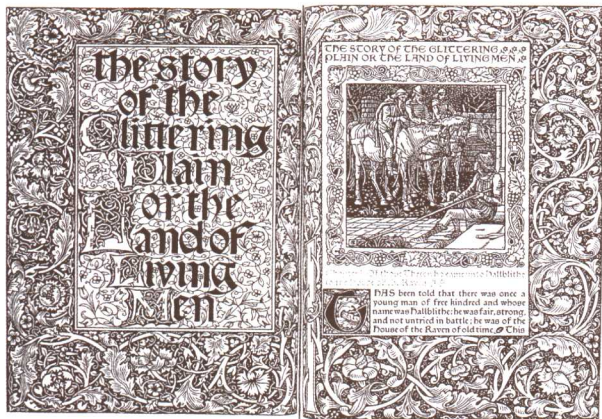 the story
of the
Glittering
Plain
or the
Land of
Living
Men
THE STORY OF THE GLITTERING
PLAIN OR THE LAND OF LIVING MEN
Hallblithe
IT HAS been told that there was once a
young man of free kindred and whose
name was Hallblithe: he was fair, strong,
and not untried in battle; he was of the
House of the Raven of old time. This